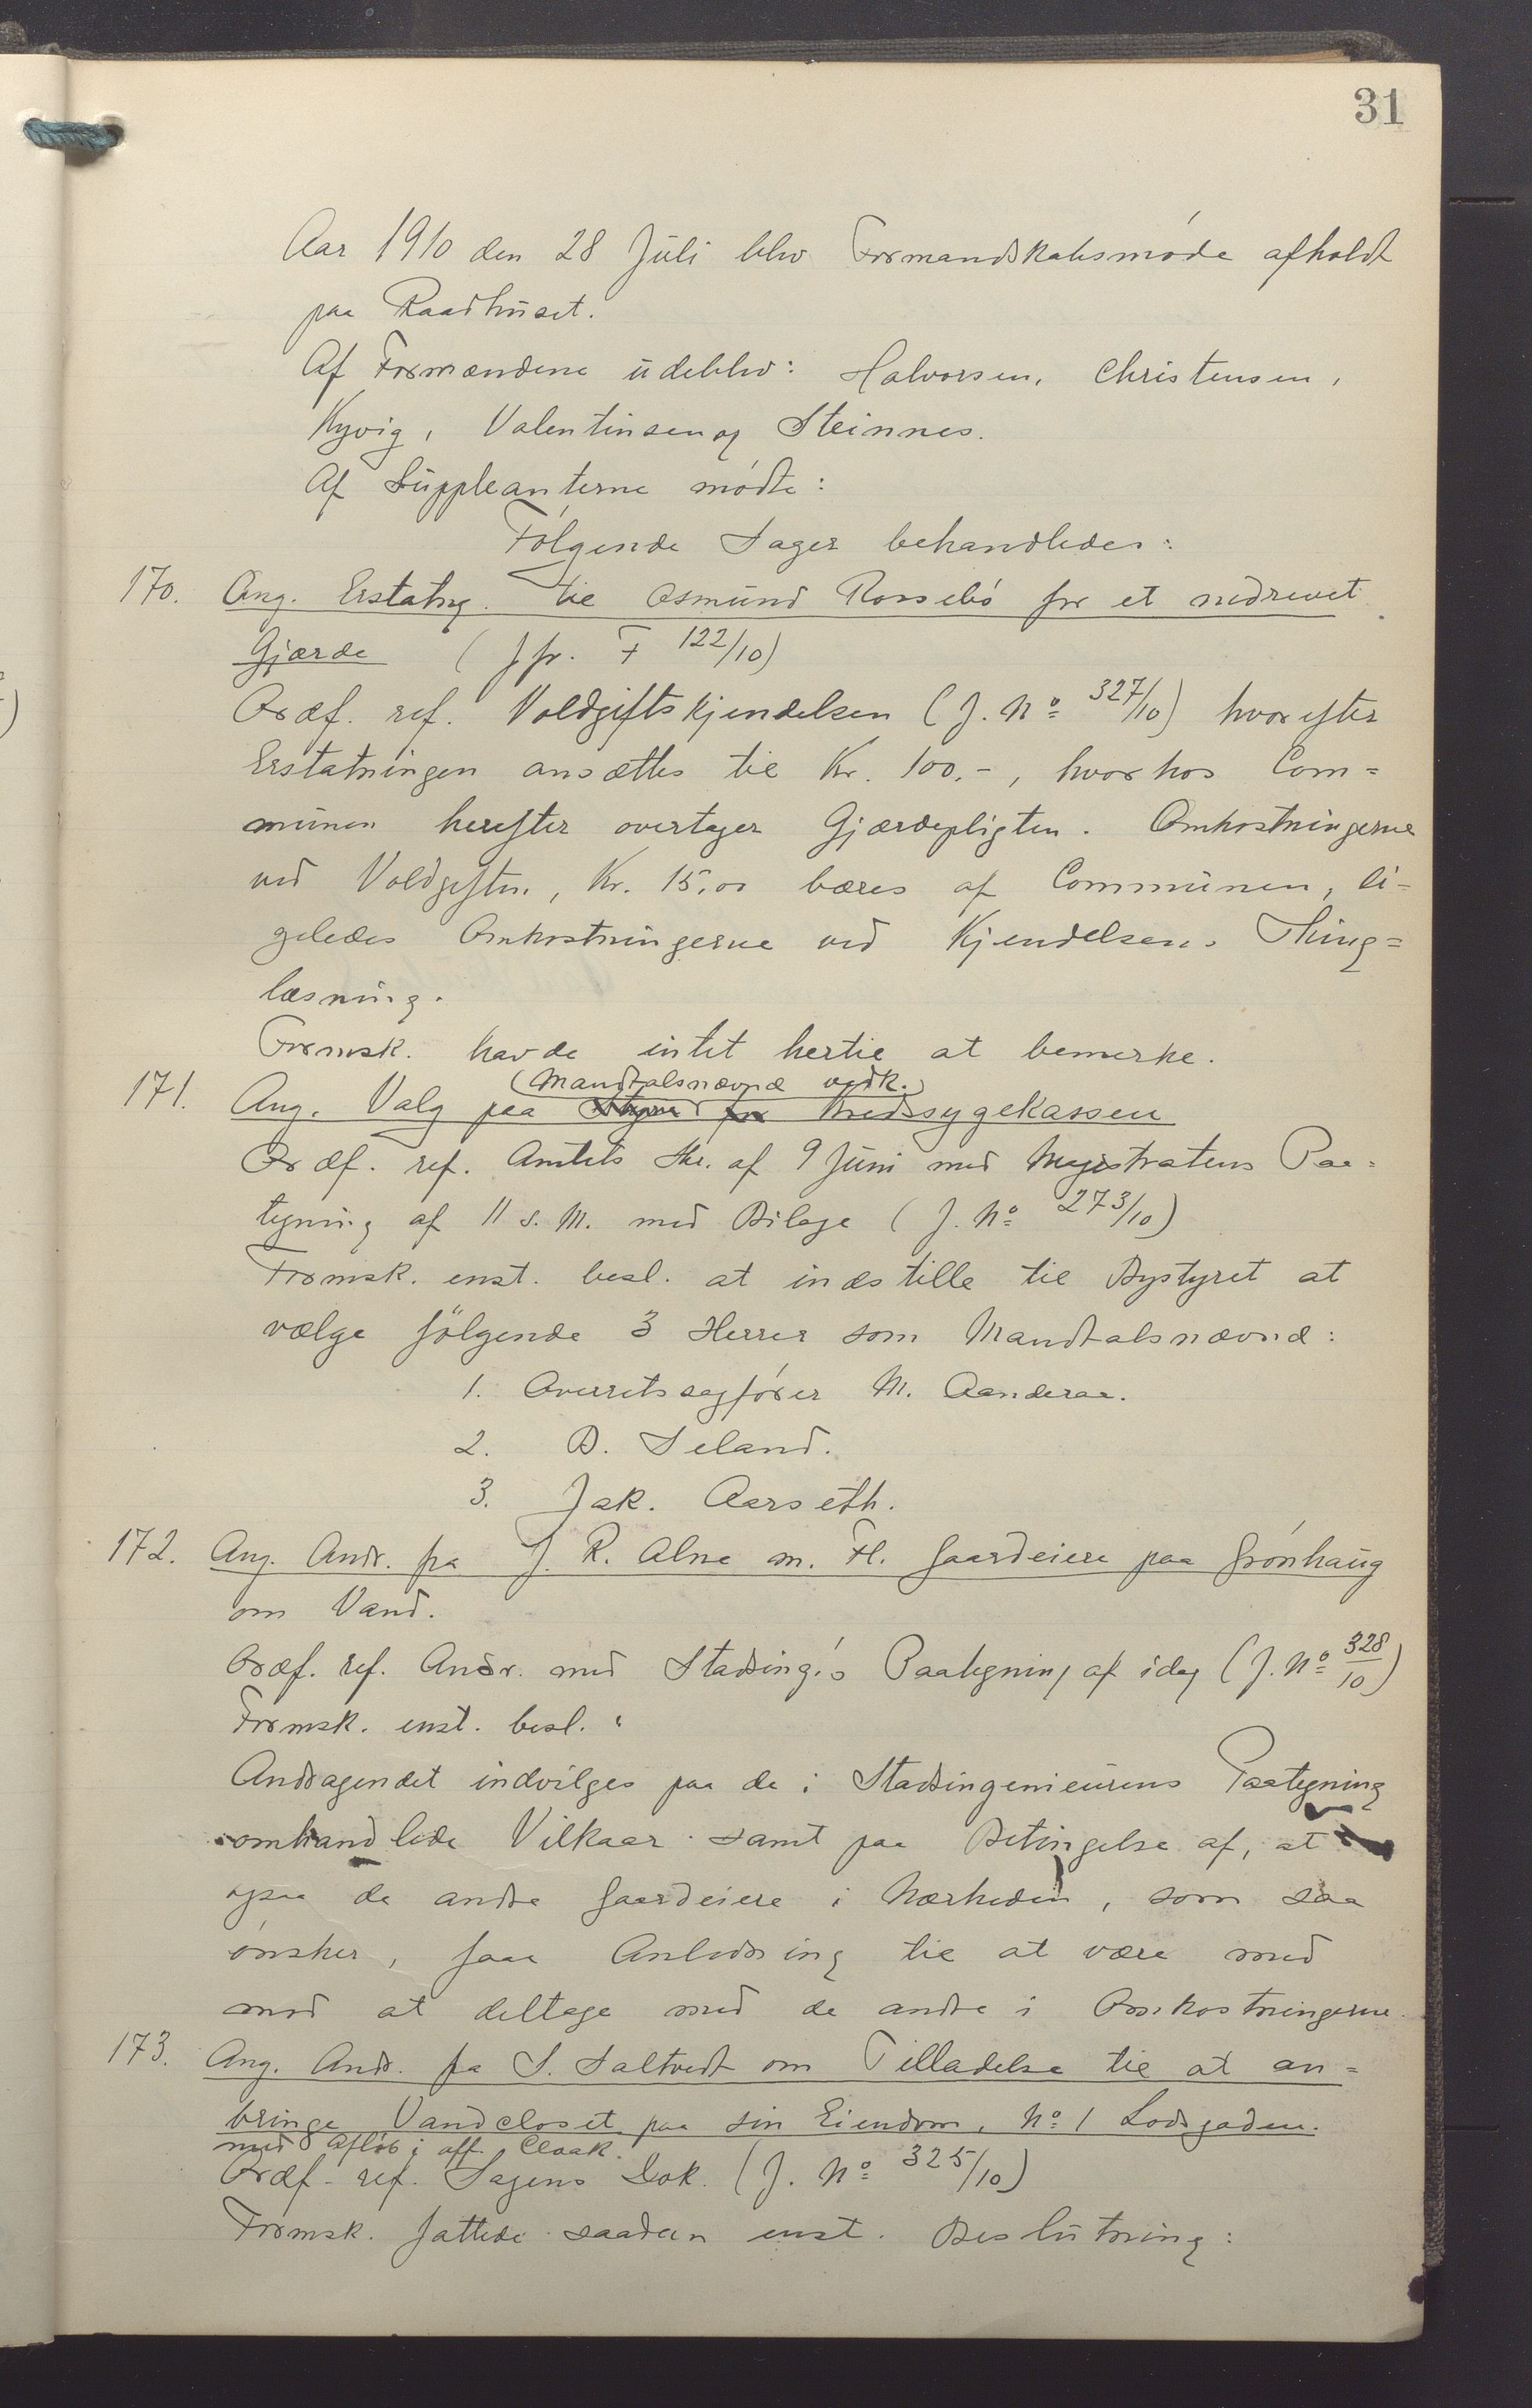 31
Aar 1910 den 28 Juli blev Formandskabsmøde afholdt
paa Raadhuset.
Af Formændene udeblev: Halvorsen, Christensen,
Kyvig, Valentinsen og Steinnes.
Af Suppleanterne mødte:
Følgende Sager behandledes:
170. Ang. Erstatng. til Osmund Rossebø for et nedrevet
Gjærde (Jfr. F 122/10)
Ordf. ref. Voldgiftskjendelsen (J. No 327/10) hvorefter
Erstatningen ansættes til Kr. 100.-, hvorhos Com=
munen herefter overtager Gjærdepligten. Omkostningerne
ved Voldgiften, Kr. 15,00 bæres af Communen, li-
geledes Omkostningerne ved Kjendelsens Thing=
læsning.
Formsk. havde intet hertil at bemerke.
(Mandtalsnævnd vedk.)
171. Ang. Valg paa Styre for Kredssygekassen
Ordf. ref. Amtets Skr. af 9 Juni med Magistratens Paa=
tegning af 11 s. M. med Bilage (J. No 273/10)
Formsk. enst. besl. at indstille til Bystyret at
vælge følgende 3 Herrer som Mandtalsnævnd:
1. Overretssagfører M. Aanderaa.
2. B. Seland.
3. Jak. Aarseth.
172. Ang. Andr. fra J. R. Alne m. Fl. Gaardeiere paa Grønhaug
om Vand.
Ordf. ref. Andr. med Stadsing.'s Paategning af idag (J. No 328/10)
Formsk. enst. besl.:
Andragendet indvilges paa de i Stadsingeniøurens Paategning
omhandlede Vilkaar samt paa Betingelse af, at
ogsaa de andre Gaardeiere i Nærheden, som saa
ønsker, faar Anledning til at være med
mod at deltage med de andre i Omkostningerne.
173. Ang. Andr. fra S. Saltvedt om Tilladelse til at an=
bringe Vandcloset paa sin Eiendom, No 1 Lodsgaden.
med Afløb i off. Cloak.
Ordf. ref. Sagens Dok. (J. No 325/10)
Formsk. fattede saadan enst. Beslutning: